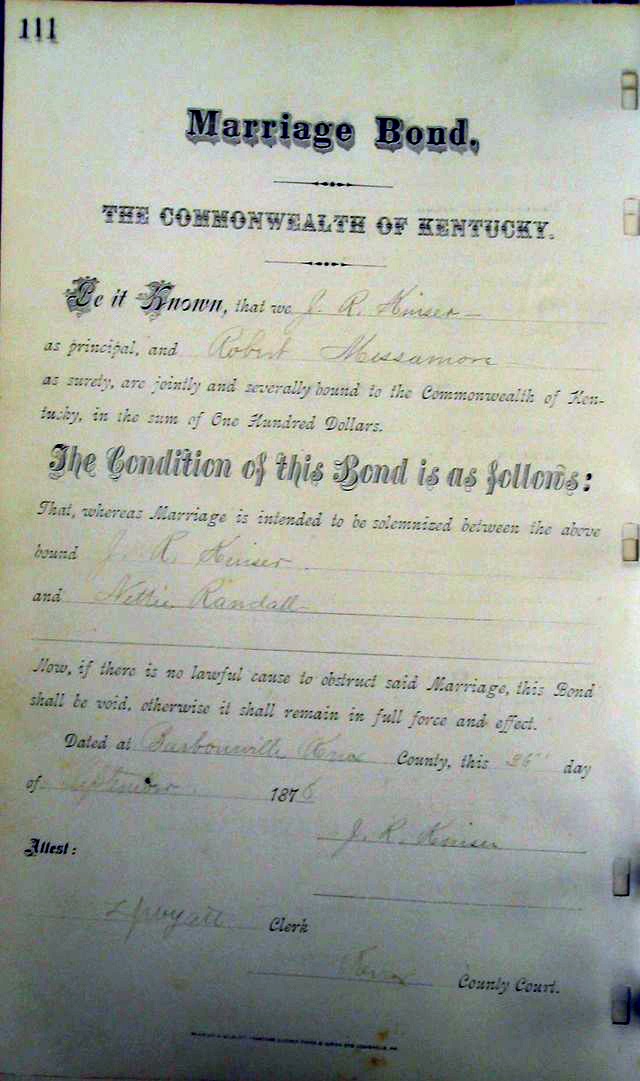 111
Marriage Bond,
THE COMMONWEALTH OF KENTUCKY.
Be it Known, that we J. R. Kinser
as principal, and Robert Messamore
as surety, are jointly and severally bound to the Commonwealth of Ken-
tucky, in the sum of One Hundred Dollars.
The Condition of this Bond is as follows:
That, whereas Marriage is intended to be solemnized between the above
bound J. R. Kinser
and Nettie Randall
Now, if there is no lawful cause to obstruct said Marriage, this Bond
shall be void, otherwise it shall remain in full force and effect.
Dated at Barbourville Knox County, this 26" day
of September 1878
J. R. Kinser
Attest:
Wyatt Clerk
Knox County Court.